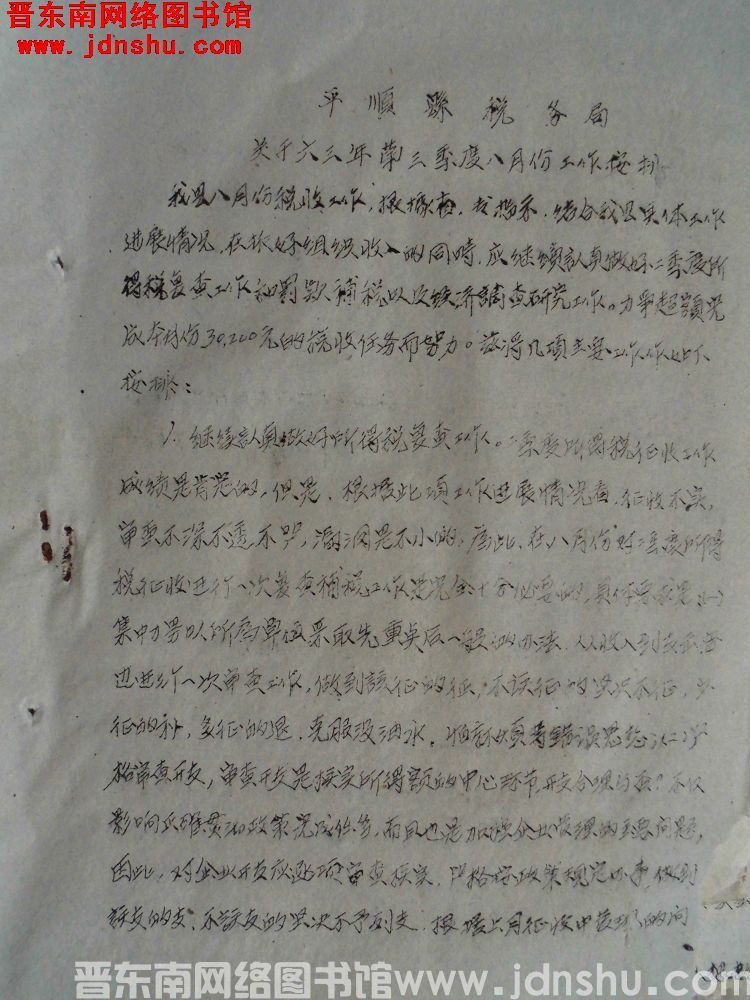 晋东南网络图书馆
www.jdnshu.com
平順縣税务局
关于六三年第三季度八月份工作按排
我县八月份税收工作,根据省、专指示,结合我县具体工作
进展情况,在抓好组织收入的同時,应继续認真做好二季度所
得税复查工作和罰款補税以及经济調查研究工作。力争超額完
成本月份30,200元的税收任务而努力。兹将几項主要工作作如下
按排:
1. 继续認真做好所得税复查工作。二季度所得税征收工作
成績是肯定的,但是,根据此項工作进展情况看,征收不实,
审查不深不透不严,漏洞是不小的,为此,在八月份对二季度所得
税征收进行一次复查補税工作是完全十分必要的,具体要求是:(一)
集中力量以所为單位采取先重点后一般的办法,从收入到
进行一次审查工作,做到該征的征,不该征的坚决不征,少
征的补,多征的退,克服没油水,怕麻煩等錯誤思想。(二)严
格审查开支,审查开支是核实所得額的中心环节,开支合理与否?不仅
影响正确貫彻政策完成任务,而且也是加强企业管理的主要问題,
因此,对企业开支应逐項审查核实,严格按政策規定办事,做到
該支的支,不該支的坚决不予列支,根据上月征收中发现的问
晋东南网络图书馆www.jdnshu.com